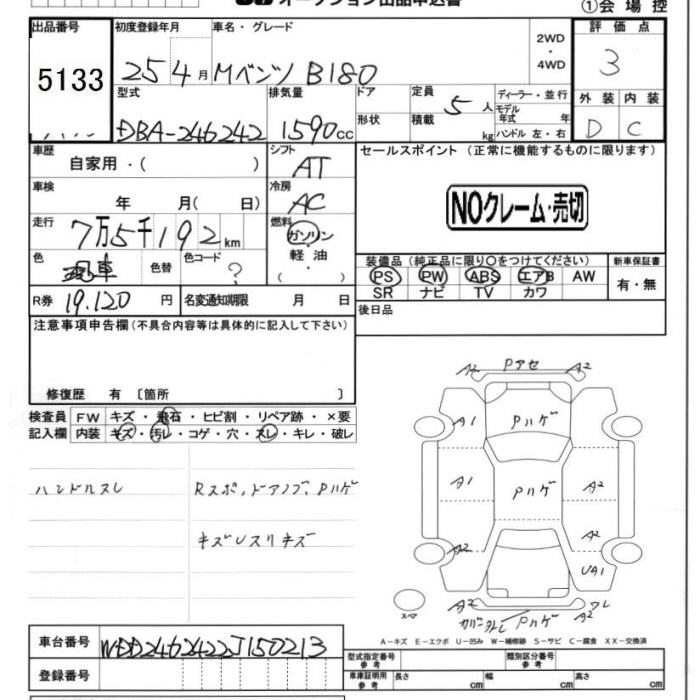 オークション出品申込書
①会場控
出品番号
5133
初度登録年月
25 4月
車名・グレード
Mベンツ B180
2WD
・
4WD
評価点
3
型式
DBA-246242
排気量
1590cc
ドア
形状
定員
5人
積載
kg
ディーラー・並行
モデル
年式 年
ハンドル 左・右
外装 内装
D C
車歴
自家用・( )
シフト
AT
セールスポイント (正常に機能するものに限ります)
NOクレーム・売切
車検
年 月( 日)
冷房
AC
走行
7万5千192km
燃料
ガソリン
軽油
・
色
現車
色替
色コード
?
装備品(純正品に限り○をつけてください)
PS PW ABS エアB AW
SR ナビ TV カワ
新車保証書
有・無
R券 19.120円
名変通知期限 月 日
後日品
注意事項申告欄(不具合内容等は具体的に記入して下さい)
修復歴 有 〔箇所 〕
検査員
記入欄
FW キズ・飛石・ヒビ割・リペア跡・×要
内装 キズ・汚レ・コゲ・穴・スレ・キレ・破レ
ハンドルスレ
Rスポ,ドアノブ,Pハゲ
キズUスリキズ
A2 Pアセ A2
A1 Pハゲ
A1 Pハゲ A2
A2 A2
UA1
スペア
A2 カバー外レ Pハゲ A2 ワレ
A-キズ E-エクボ U-凹み W-補修跡 S-サビ C-腐食 XX-交換済
車台番号
WDD2462422J150213
登録番号
型式指定番号
参考
類別区分番号
参考
車庫証明用
参考
長さ cm
幅 cm
高さ cm